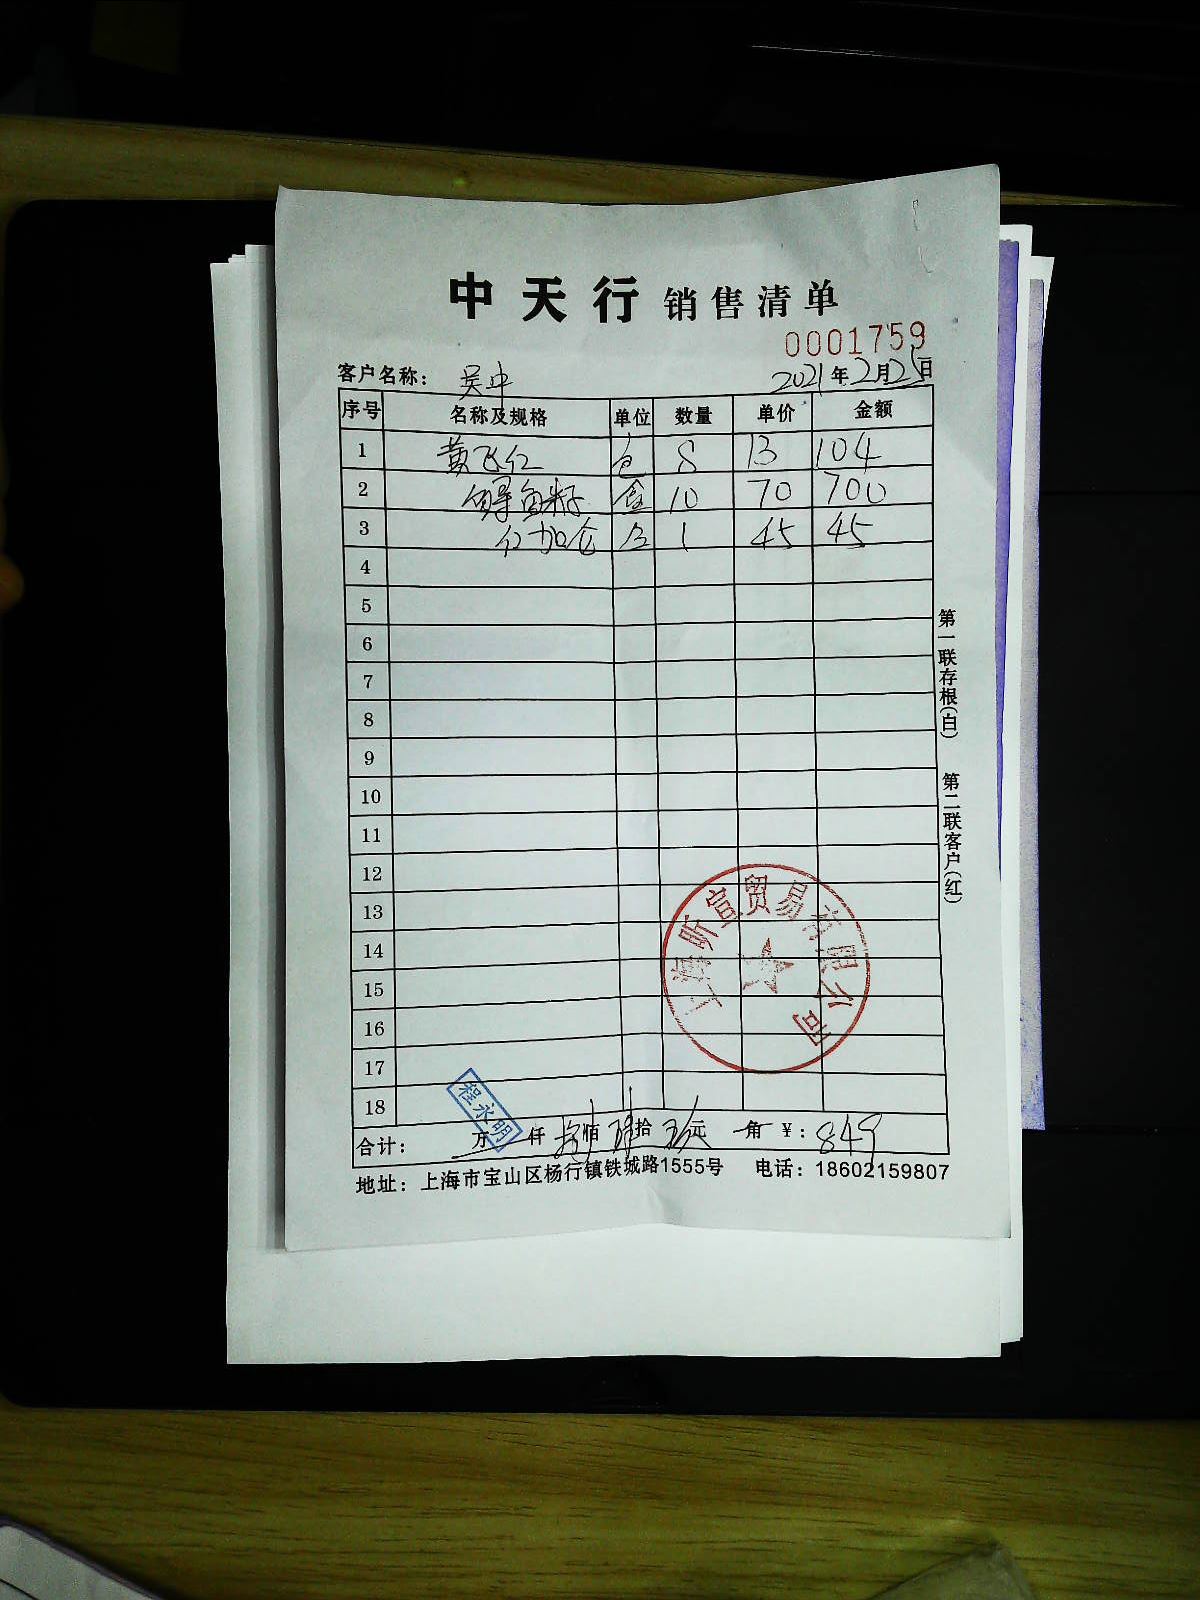 中天行 销售清单
0001759
客户名称： 吴中 2021年2月25日
序号 名称及规格 单位 数量 单价 金额
1 黄飞红 包 8 13 104
2 鲟鱼籽 盒 10 70 700
3 红加仑 盒 1 45 45
4
5
6
7
8
9
10
11
12
13
14
15
16
17
18
合计： 万 仟 捌佰 肆拾 玖元 角 ￥：849
地址：上海市宝山区杨行镇铁城路1555号 电话：18602159807
第一联存根(白) 第二联客户(红)
上海昕宣贸易有限公司
程永明